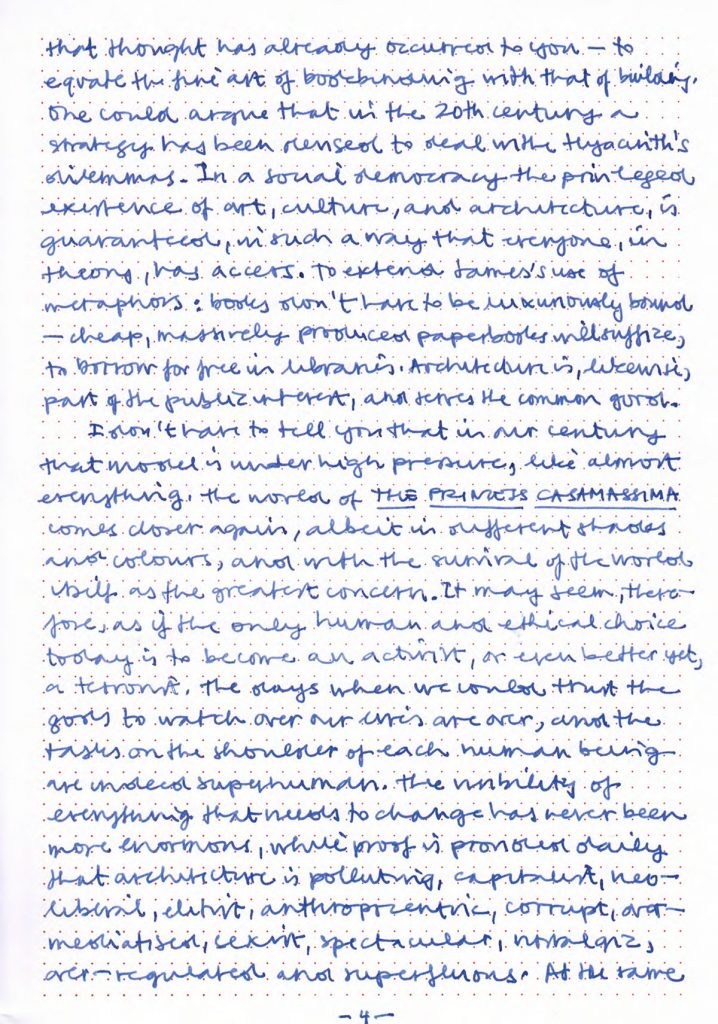 that thought has already occurred to you — to
equate the fine art of bookbinding with that of building.
One could argue that in the 20th century a
strategy has been devised to deal with Hyacinth's
dilemmas. In a social democracy the privileged
existence of art, culture, and architecture, is
guaranteed, in such a way that everyone, in
theory, has access. To extend James's use of
metaphors: books don't have to be luxuriously bound
— cheap, massively produced paperbooks will suffize,
to borrow for free in libraries. Architecture is, likewise,
part of the public interest, and serves the common good.
I don't have to tell you that in our century
that model is under high pressure, like almost
everything. The world of THE PRINCESS CASAMASSIMA
comes closer again, albeit in different shades
and colours, and with the survival of the world
itself as the greatest concern. It may seem, there-
fore, as if the only human and ethical choice
today is to become an activist, or even better yet,
a terrorist. The days when we could trust the
gods to watch over our lives are over, and the
tasks on the shoulder of each human being
are indeed superhuman. The visibility of
everything that needs to change has never been
more enormous, while proof is provided daily
that architecture is polluting, capitalist, neo-
liberal, elitist, anthropocentric, corrupt, over-
mediatised, sexist, spectacular, nostalgic,
over-regulated and superfluous. At the same
-4-